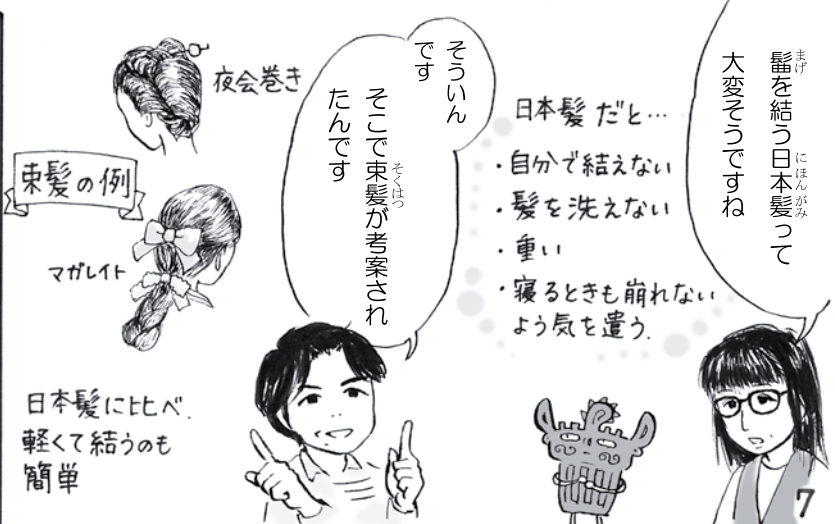 髷を結う日本髪って
大変そうですね
日本髪だと…
・自分で結えない
・髪を洗えない
・重い
・寝るときも崩れない
よう気を遣う.
そういん
です
そこで束髪が考案され
たんです
夜会巻き
束髪の例
マガレイト
日本髪に比べ、
軽くて結うのも
簡単
7